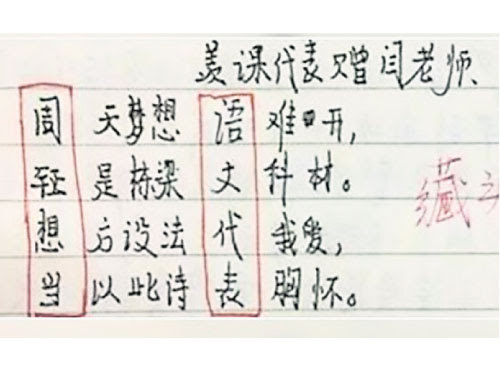 课代表赠闫老师
周天梦想语难口开，
轻是栋梁文科材。
想方设法代我爱，
当以此诗表胸怀。